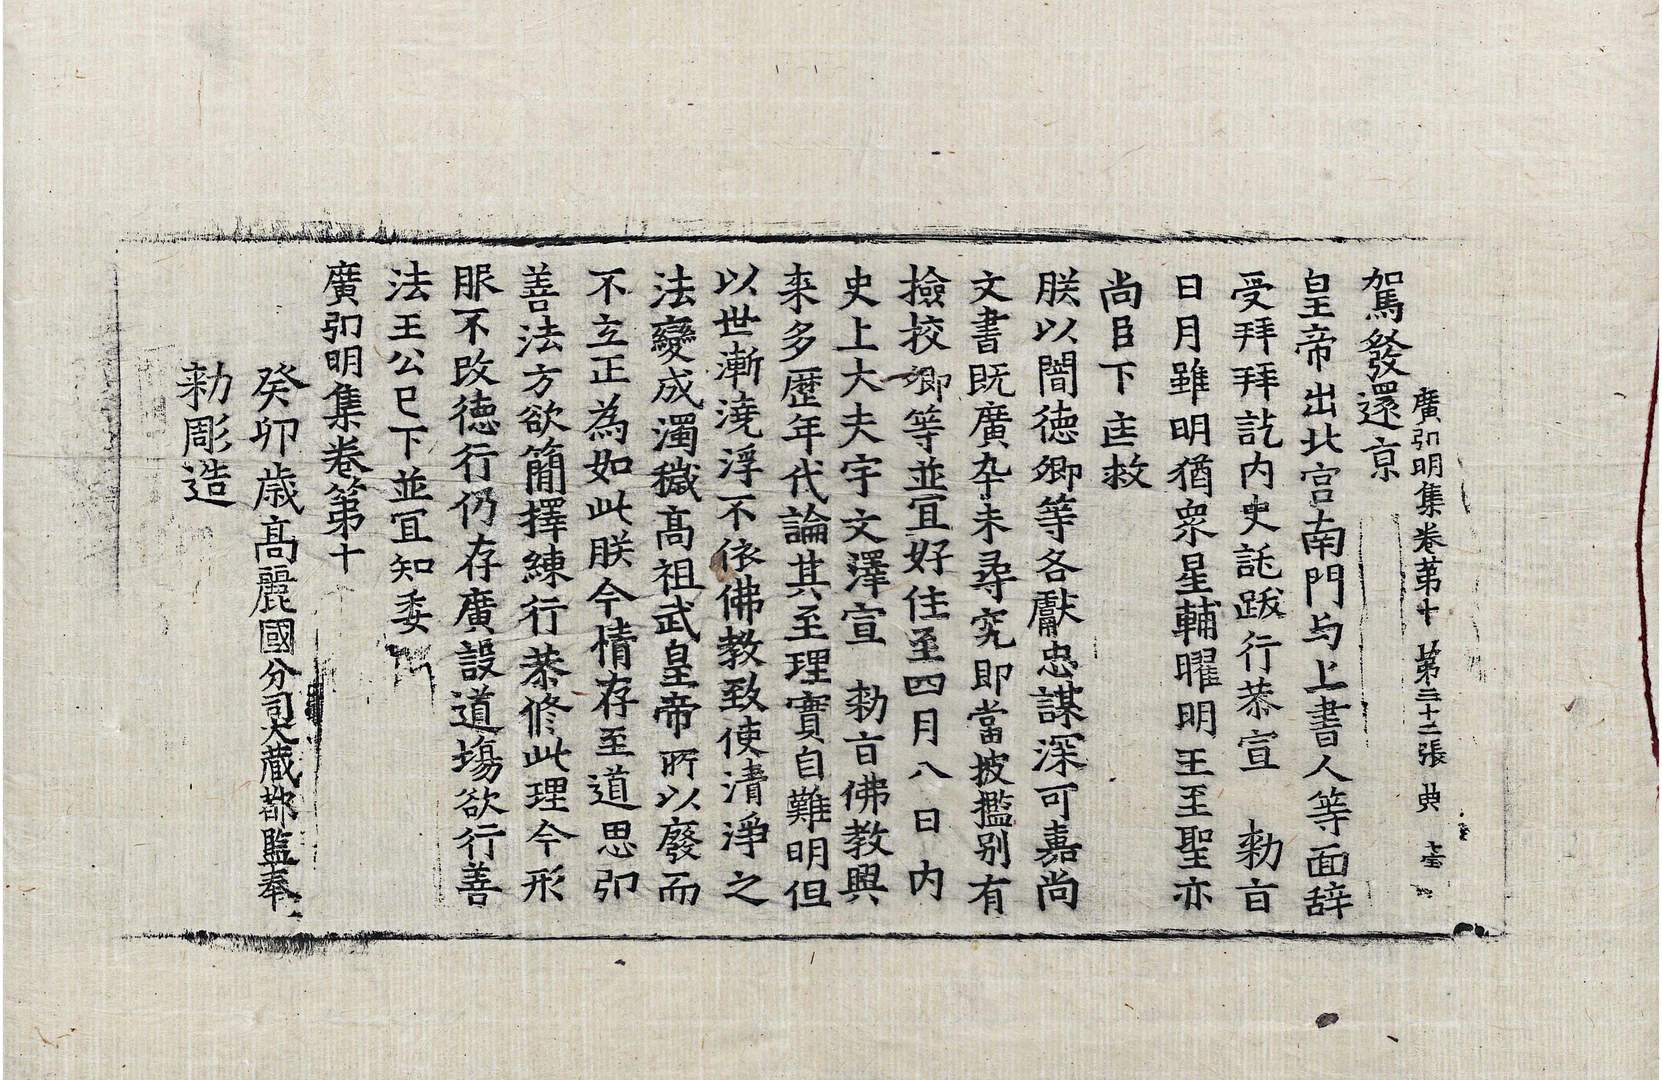 廣弘明集卷第十 第三十二張 典
駕發還京
皇帝出北宮南門与上書人等面辞
受拜拜訖内史託跋行恭宣 勅㫖
日月雖明猶衆星輔曜明王至聖亦
尚臣下匡救
朕以闇德卿等各獻忠謀深可嘉尚
文書旣廣卒未尋究即當披攬别有
撿挍卿等並宜好住至四月八日内
史上大夫宇文澤宣 勅㫖佛教興
来多歷年代論其至理實自難明但
以世漸澆浮不依佛教致使清淨之
法變成濁穢髙祖武皇帝所以廢而
不立正為如此朕今情存至道思弘
善法方欲簡擇練行恭修此理令形
服不改德行仍存廣設道場欲行善
法王公已下並宜知委
廣弘明集卷第十
癸卯歲髙麗國分司大藏都監奉
勅彫造